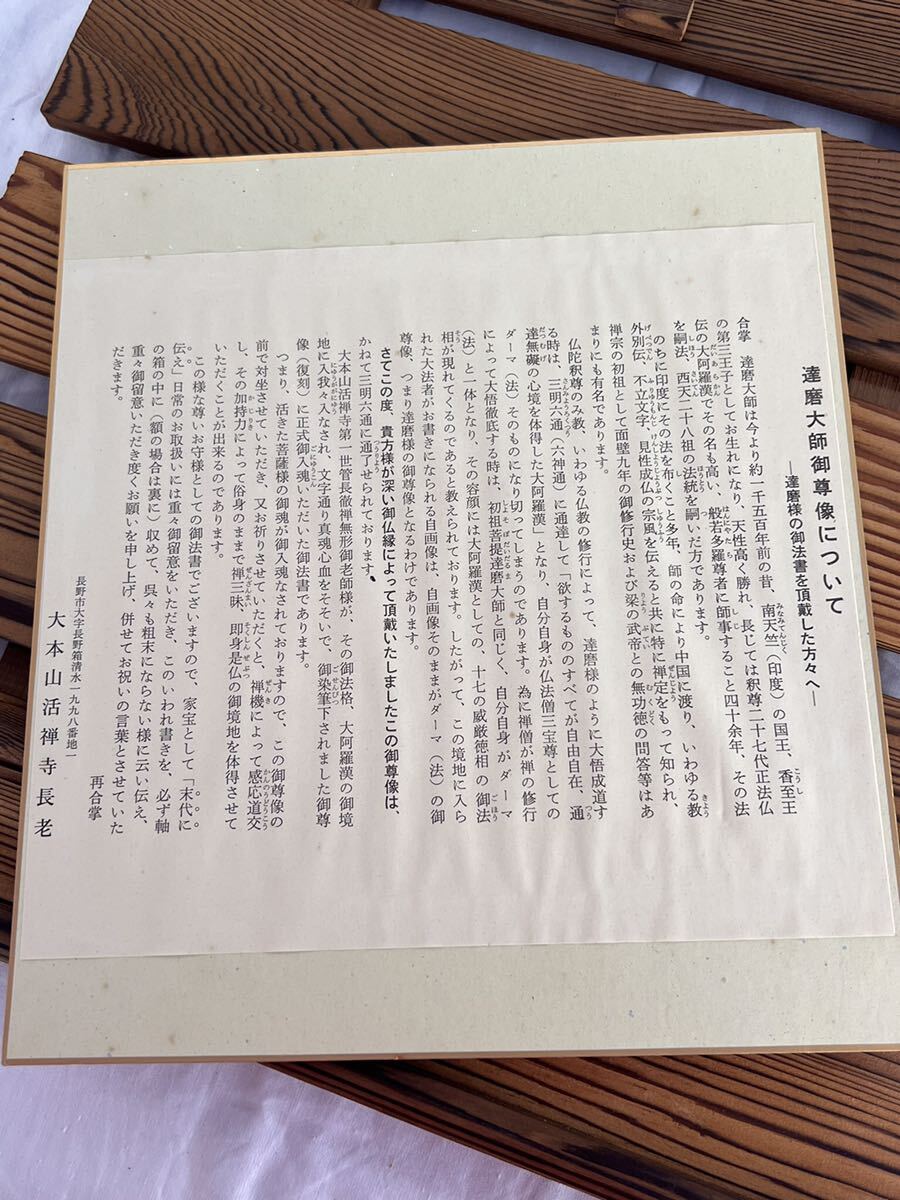 達磨大師御尊像について
―達磨様の御法書を頂戴した方々へ―
合掌　達磨大師は今より約一千五百年前の昔、南天竺（印度）の国王、香至王
の第三王子としてお生れになり、天性高く勝れ、長じては釈尊二十七代正法仏
伝の大阿羅漢でその名も高い、般若多羅尊者に師事すること四十余年、その法
を嗣法、西天二十八祖の法統を嗣いだ方であります。
のちに印度にその法を布くこと多年、師の命により中国に渡り、いわゆる教
外別伝、不立文字、見性成仏の宗風を伝えると共に特に禅定をもって知られ、
禅宗の初祖として面壁九年の御修行史および梁の武帝との無功徳の問答等はあ
まりにも有名であります。
仏陀釈尊のみ教、いわゆる仏教の修行によって、達磨様のように大悟成道す
る時は、三明六通（六神通）に通達して「欲するもののすべてが自由自在、通
達無礙の心境を体得した大阿羅漢」となり、自分自身が仏法僧三宝尊としての
ダーマ（法）そのものになり切ってしまうのであります。為に禅僧が禅の修行
によって大悟徹底する時は、初祖菩提達磨大師と同じく、自分自身がダーマ
（法）と一体となり、その容顔には大阿羅漢としての、十七の威厳徳相の御法
相が現れてくるのであると教えられております。したがって、この境地に入ら
れた大法者がお書きになられる自画像は、自画像そのままがダーマ（法）の御
尊像、つまり達磨様の御尊像となるわけであります。
さてこの度、貴方様が深い御仏縁によって頂戴いたしましたこの御尊像は、
かねて三明六通に通了せられております、
大本山活禅寺第一世管長徹禅無形御老師様が、その御法格、大阿羅漢の御境
地に入我々入なされ、文字通り真魂心血をそそいで、御染筆下されました御尊
像（復刻）に正式御入魂いただいた御法書であります。
つまり、活きた菩薩様の御魂が御入魂なされておりますので、この御尊像の
前で対坐させていただき、又お祈りさせていただくと、禅機によって感応道交
し、その加持力によって俗身のままで禅三昧、即身是仏の御境地を体得させて
いただくことが出来るのであります。
この様な尊いお守様としての御法書でございますので、家宝として「末代に
伝え」日常のお取扱いには重々御留意をいただき、このいわれ書きを、必ず軸
の箱の中に（額の場合は裏に）収めて、呉々も粗末にならない様に云い伝え、
重々御留意いただき度くお願いを申し上げ、併せてお祝いの言葉とさせていた
だきます。
再合掌
長野市大字長野箱清水一九九八番地一
大本山活禅寺長老